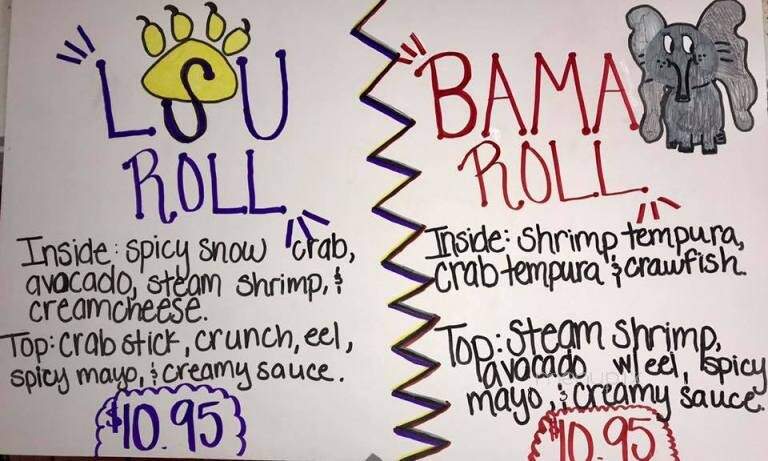 LSU
ROLL
Inside: spicy snow crab,
avocado, steam shrimp, &
creamcheese.
Top: crab stick, crunch, eel,
spicy mayo, & creamy sauce.
$10.95
BAMA
ROLL
Inside: shrimp tempura,
crab tempura & crawfish.
Top: steam shrimp,
avocado w/ eel, spicy
mayo, & creamy sauce.
$10.95